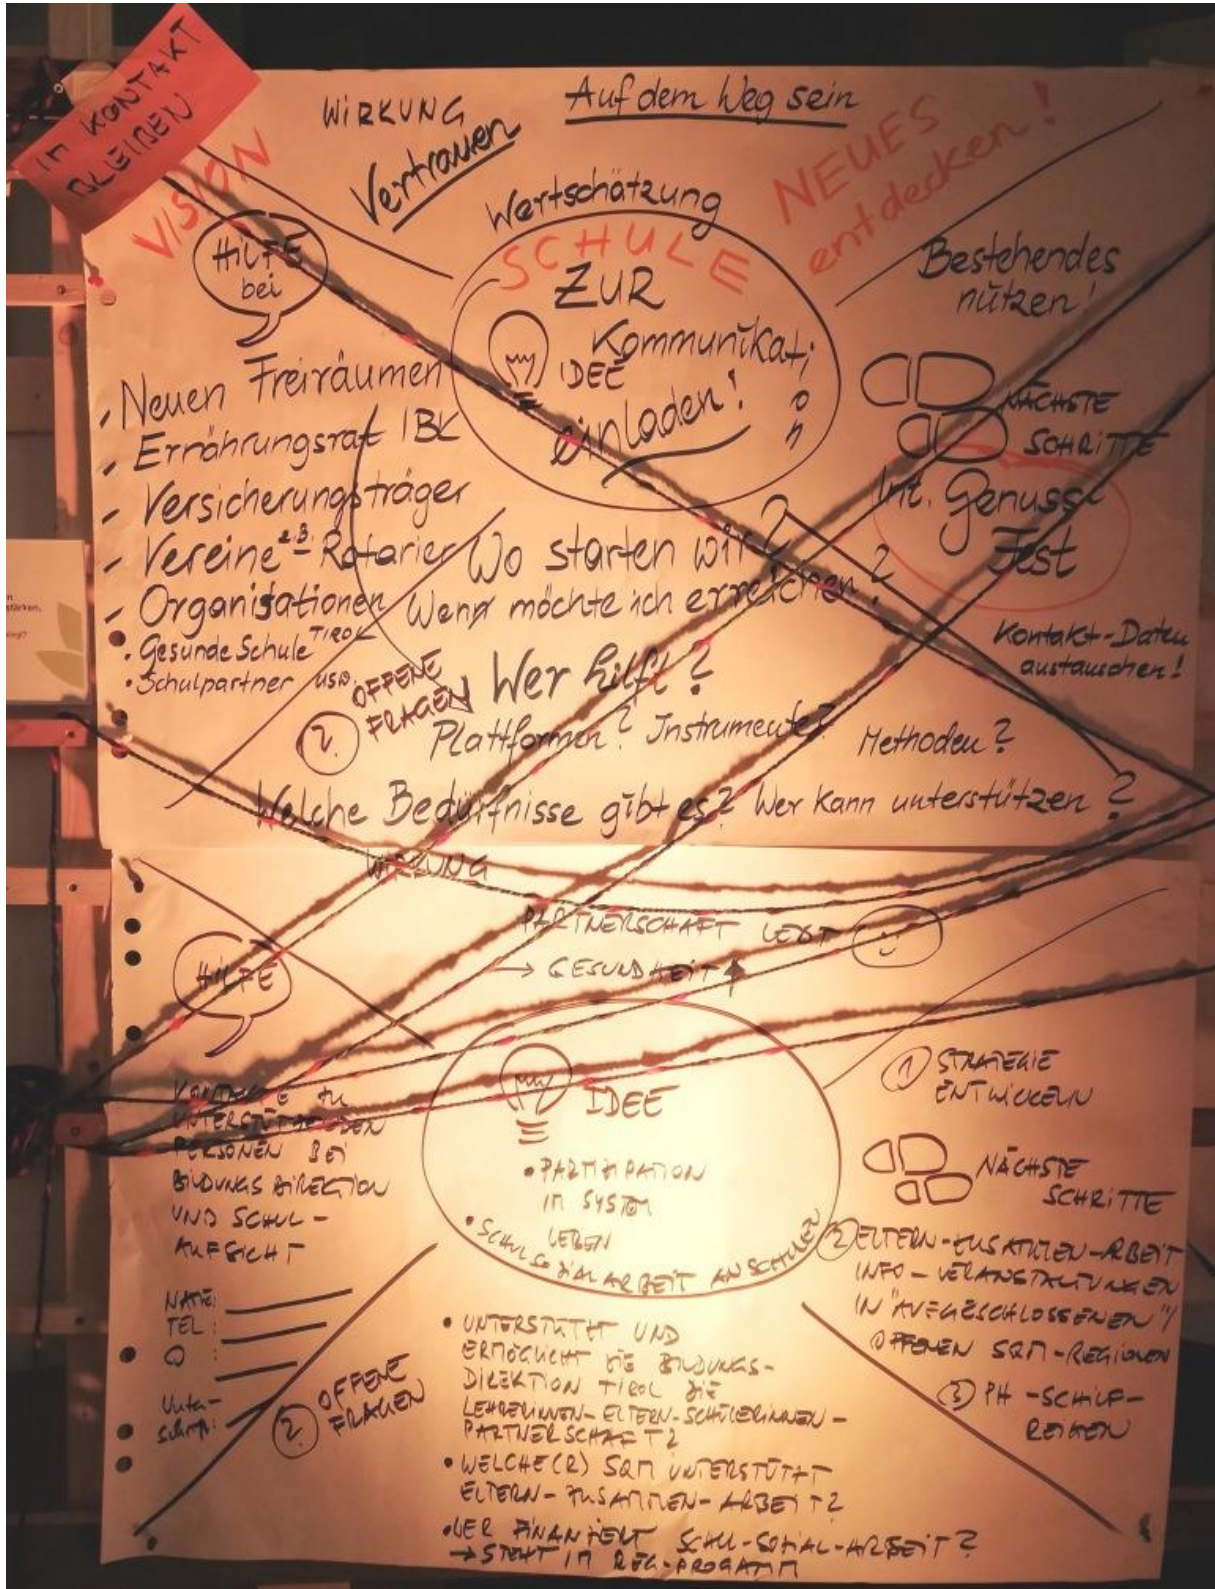 IN KONTAKT
BLEIBEN
VISION
WIRKUNG
Vertrauen
Auf dem Weg sein
Wertschätzung
NEUES
entdecken!
HILFE
bei
SCHULE
ZUR
Kommunikation
IDEE
einladen!
Bestehendes
nützen!
- Neuen Freiräumen
- Ernährungsrat IBK
- Versicherungsträger
- Vereine z.B. Rotarier
- Organisationen
• Gesunde Schule TIROL
• Schulpartner usw.
NÄCHSTE
SCHRITTE
Int. Genuss
Fest
Kontakt-Daten
austauschen!
Wo starten wir?
Wenn möchte ich erreichen?
? OFFENE
FRAGEN
Wer hilft?
Plattformen? Instrumente? Methoden?
Welche Bedürfnisse gibt es? Wer kann unterstützen?
WIRKUNG
PARTNERSCHAFT LEBT
→ GESUNDHEIT ↑
HILFE
KONTAKTE ZU
UNTERSTÜTZENDEN
PERSONEN BEI
BILDUNGSDIREKTION
UND SCHUL-
AUFSICHT
NAME:
TEL:
Unter-
schrift:
IDEE
• PARTIZIPATION
IM SYSTEM
LEBEN
• SCHULSOZIALARBEIT AN SCHULEN
① STRATEGIE
ENTWICKELN
NÄCHSTE
SCHRITTE
② ELTERN-ZUSAMMEN-ARBEIT
INFO-VERANSTALTUNGEN
IN
OFFENEN SQM-REGIONEN
③ PH-SCHILF-
REIHEN
? OFFENE
FRAGEN
• UNTERSTÜTZT UND
ERMÖGLICHT DIE BILDUNGS-
DIREKTION TIROL DIE
LEHRERINNEN-ELTERN-SCHÜLERINNEN-
PARTNERSCHAFT?
• WELCHE(R) SQM UNTERSTÜTZT
ELTERN-ZUSAMMEN-ARBEIT?
• WER FINANZIERT SCHUL-SOZIAL-ARBEIT?
→ STEHT IM REG-PROGRAMM